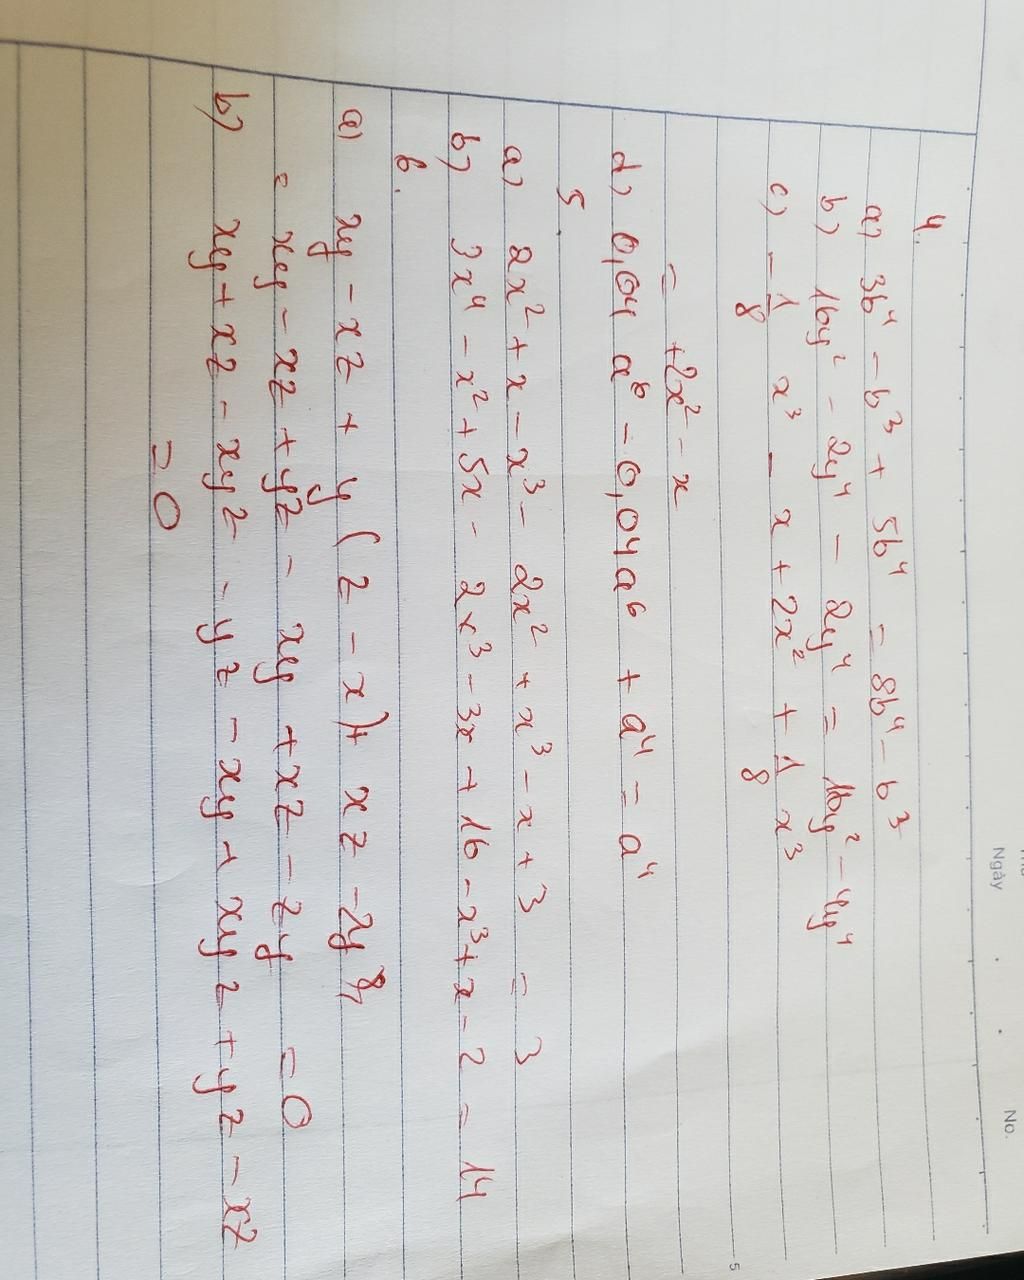 Ngày
No.
4.
a) 3b⁴ - b³ + 5b⁴ = 8b⁴ - b³
b) 16y² - 2y⁴ - 2y⁴ = 16y² - 4y⁴
c) - 1/8 x³ - x + 2x² + 1/8 x³
= +2x² - x
d) 0,04 a⁶ - 0,04a⁶ + a⁴ = a⁴
5.
a) 2x² + x - x³ - 2x² + x³ - x + 3 = 3
b) 3x⁴ - x² + 5x - 2x³ - 3x + 16 - x³ + x - 2 = 14
6.
a) xy - xz + y (z - x) + xz - zy
= xy - xz + yz - xy + xz - zy = 0
b) xy + xz - xyz - yz - xy + xyz + yz - xz
= 0
5